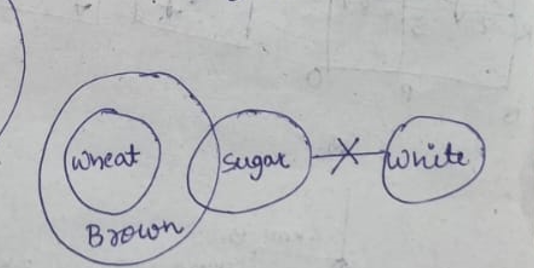 Wheat Sugar White
Brown